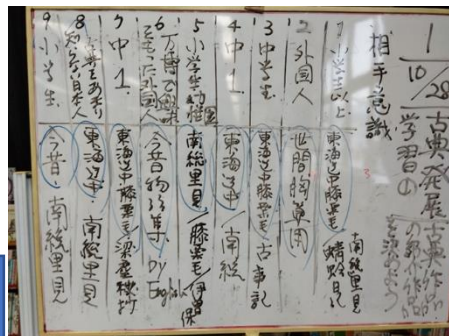 1
10/28
古典発展学習①
古典作品の紹介
相手意識
南総里見
1 小学生以上
東海道中膝栗毛
蜻蛉日記
2 外国人
世間胸算用
3 中学生
東海道中膝栗毛
古事記
4 中1
東海道中
南総
5 小学生
南総里見
膝栗毛
6 万博で
外国人
今昔物語集 by English
7 中1
東海道中膝栗毛
梁塵秘抄
8
知らない日本人
東海道中
南総里見
9 小学生
今昔・南総里見